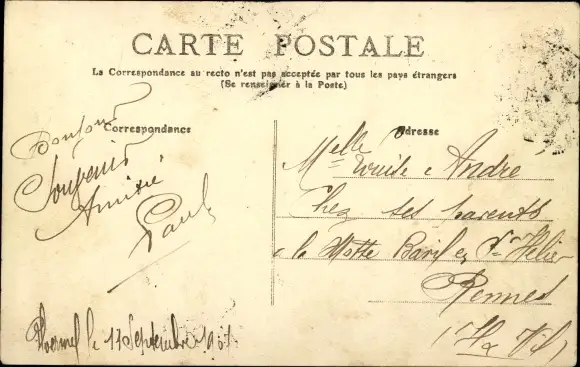 CARTE POSTALE
La Correspondance au recto n'est pas acceptée par tous les pays étrangers
(Se renseigner à la Poste)
Correspondance
Bonjour
Souvenir
Amitié
Paul
le 17 Septembre
Adresse
Melle Louise André
Chez ses parents
à la Motte Baril en St Hélier
Rennes